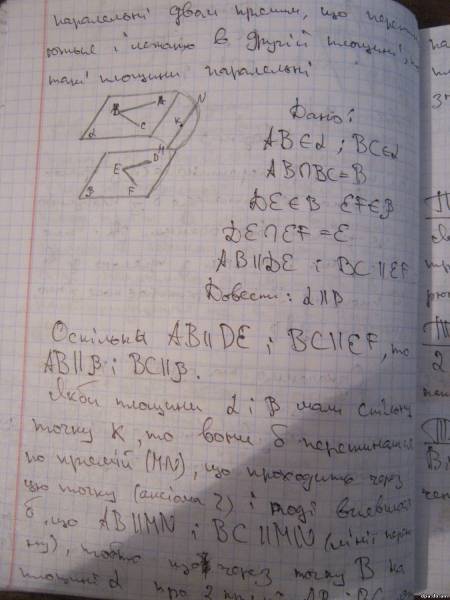 паралельні двом прямим, що перети
ються і лежать в другій площині, то
такі площини паралельні
Дано:
AB∈α ; BC∈α
AB∩BC=B
DE∈B EF∈β
DE∩EF=E
AB∥DE і BC∥EF
Довести: α∥β
N
A
B
C
K
α
M
D
E
F
β
Оскільки AB∥DE і BC∥EF, то
AB∥β і BC∥β.
Якби площини α і B мали спільну
точку K, то вони б перетинались
по прямій (MN), що проходить через
цю точку (аксіома 2) і тоді
б, що AB∥MN і BC∥MN (лінії
), тобто через точку B на
площині α про 2 прямі AB і BC
2